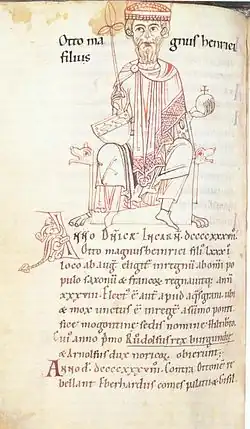 Otto ma gnus henrici
filius
ANNO DÑICE INCARÑ. dccccxxxvii.
Otto magnus henrici filiꝰ lxxxi
loco ab aug. eligit᷑ in regnū ab om̄i po
pulo saxonū & francoꝝ. regnauitq; ann̄
xxxviii.
& mox unctus ē in regē a sūmo ponti
fice mogontine sedis nomine
Cuiꝰ anno p̄mo Rudolfus rex burgundie
& Arnolfus dux noricoꝝ obierunt.
ANNO d. dccccxxxviii. Contra Ottonē re
bellant Eberhardus comes palatin⁹ & Gisil